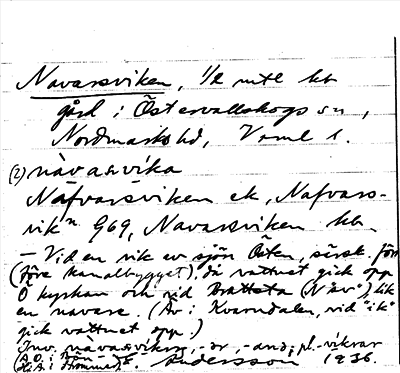 Navarsviken, 1/2 mtl kb
gård i Östervallskogs sn,
Nordmarks hd, Vrml l.
(2) nàvasvika
Näfvarsviken ek, Nafvars-
vik n G69, Navarsviken kb.
– Vid en vik av sjön Östen, särsk. förr
(före kanalbygget), då vattnet gick opp
kyrkan och vid Bråttsta (N "äv") lik
en navare. (Är i Kvarndalen, vid "ik"
gick vattnet opp.)
Inv. nàvasviking, -ar, -and, pl. -vikvar
Andersson 1936.